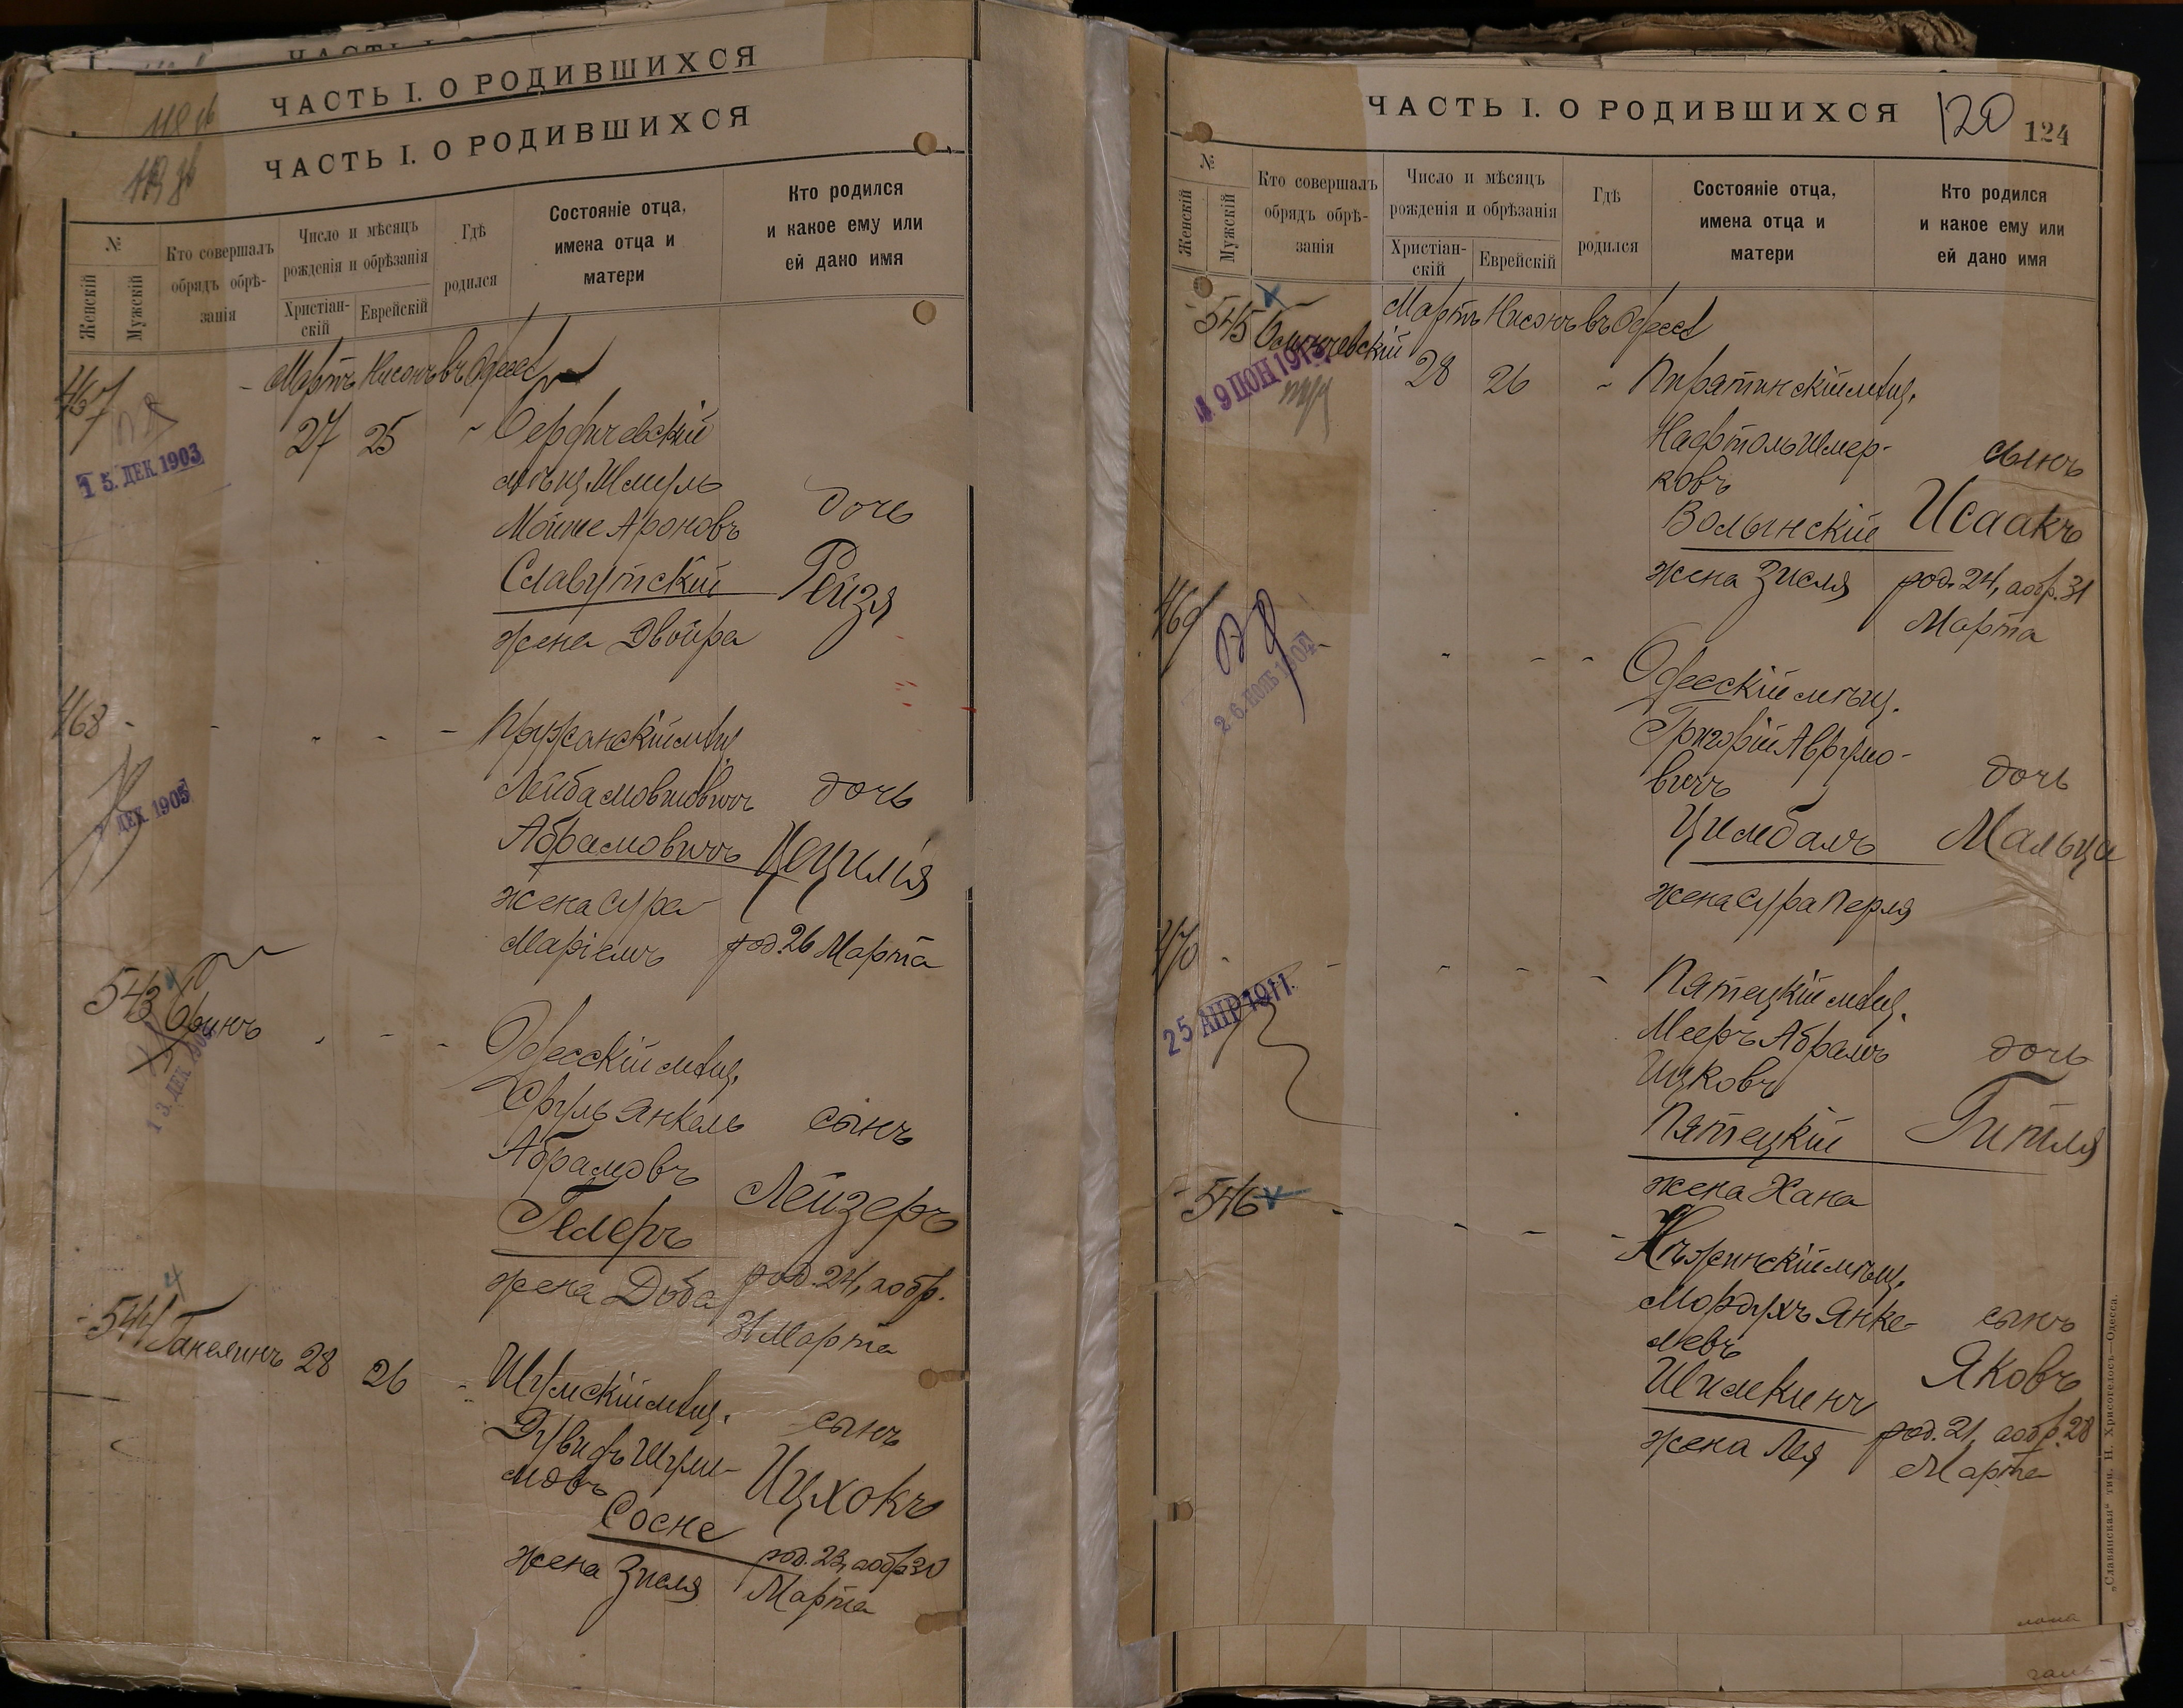 ЧАСТЬ I. О РОДИВШИХСЯ
ЧАСТЬ I. О РОДИВШИХСЯ
№
Женскій
Мужскій
Кто совершалъ
обрядъ обрѣ-
занія
Число и мѣсяцъ
рожденія и обрѣзанія
Христіан-
скій
Еврейскій
Гдѣ
родился
Состояніе отца,
имена отца и
матери
Кто родился
и какое ему или
ей дано имя
Мартъ Нисонъ въ Одессѣ
467
27 25 Бердичевскій
15. ДЕК. 1903
мѣщ. Шмуль
Мойше Ароновъ дочь
Славутскій Рейзя
жена Двойра
468
Пружанскій мѣщ.
Лейба Мовшовичъ дочь
ДЕК. 1905
Абрамовичъ Цецилія
жена Сура
Маріемъ род. 26 Марта
543
Одесскій мѣщ.
13. ДЕК.
Сруль Янкель сынъ
Абрамовъ Лейзеръ
Гелеръ
жена Доба род. 24, а обр.
31 Марта
544 28 26 Шумскій мѣщ.
Дувидъ Шули- сынъ
мовъ Ицхокъ
Сосне
жена Зисля род. 23, а обр. 30
Марта
ЧАСТЬ I. О РОДИВШИХСЯ
120
124
№
Женскій
Мужскій
Кто совершалъ
обрядъ обрѣ-
занія
Число и мѣсяцъ
рожденія и обрѣзанія
Христіан-
скій
Еврейскій
Гдѣ
родился
Состояніе отца,
имена отца и
матери
Кто родился
и какое ему или
ей дано имя
545 Мартъ Нисонъ въ Одессѣ
28 26 Пирятинскій мѣщ.
Нафтоль Шмер- сынъ
ковъ
Волынскій Исаакъ
жена Зисля род. 24, а обр. 31
Марта
469
Одесскій мѣщ.
26. НОЯБ 1904
Григорій Аврумо-
вичъ дочь
Цимбалъ Мальця
жена Сура Перля
470
Пятецкій мѣщ.
25 АПР 1911.
Мееръ Абрамъ дочь
Ицковъ
Пятецкій Гитля
жена Хана
546
Нѣжинскій мѣщ.
Мордухъ Янке- сынъ
левъ Яковъ
Шимкинъ
жена Лея род. 21, а обр. 28
Марта
„Славянская“ тип. Н. Хрисогелосъ—Одесса.